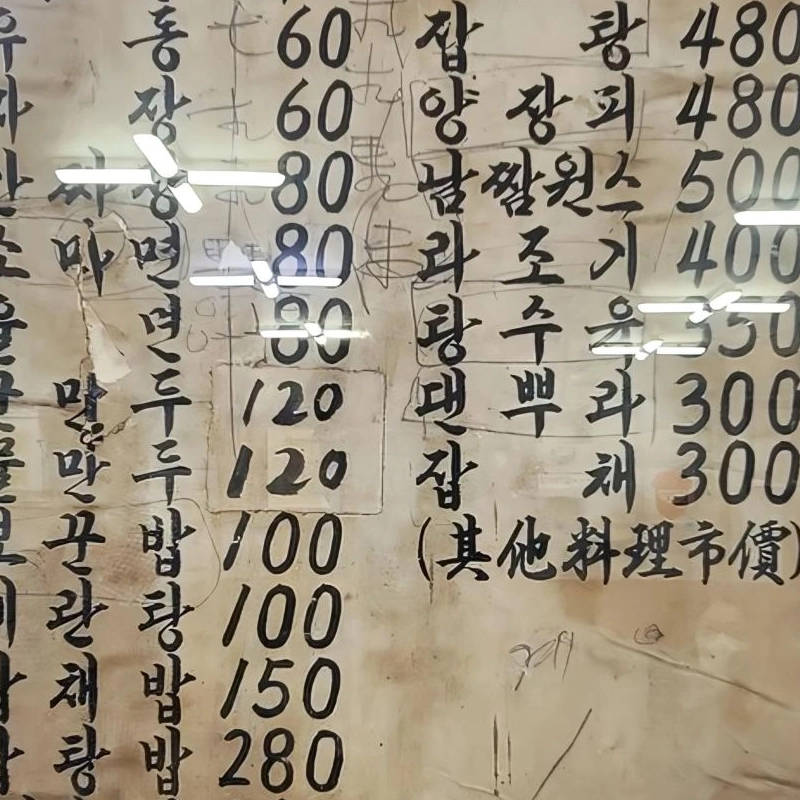 동 60
장 60
짜 장 80
마 면 80
면 80
만 두 120
만 두 120
꾼 밥 100
란 탕 100
채 밥 150
탕 밥 280
잡 탕 480
양 장 피 480
남 짬 원 스 500
라 조 기 400
탕 수 육 350
댄 뿌 라 300
잡 채 300
(其他料理市價)